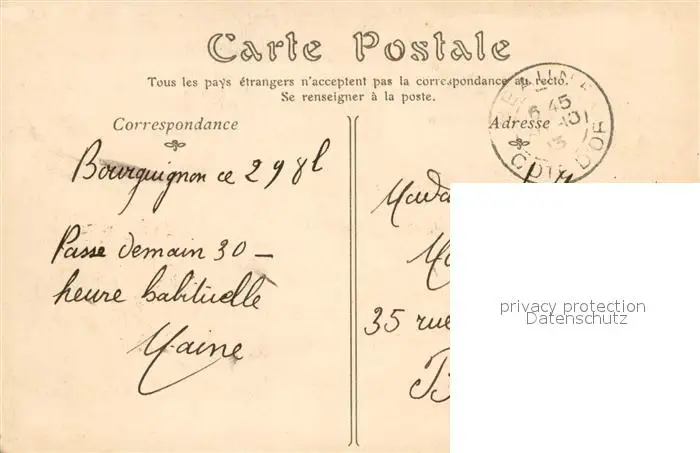 Carte Postale
Tous les pays étrangers n'acceptent pas la correspondance au recto.
Se renseigner à la poste.
Correspondance
Adresse
BEAUNE
6 45
13
COTE D'OR
Bourguignon ce 29 8b
Passe demain 30 —
heure habituelle
35 rue
privacy protection
Datenschutz